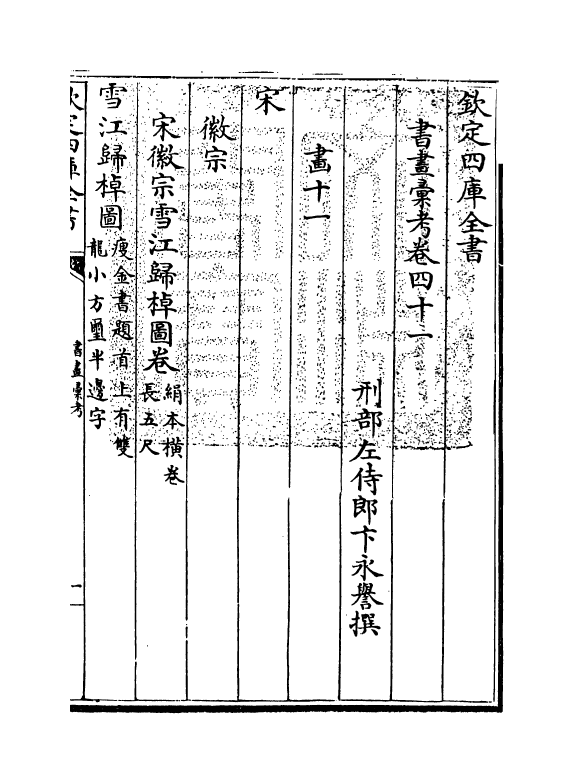 欽定四庫全書
書畫彙考卷四十一
刑部左侍郎卞永譽撰
畫十一
宋
徽宗
宋徽宗雪江歸棹圖卷
絹本橫卷
長五尺
雪江歸棹圖
瘦金書題首上有雙
龍小方璽半邊字
欽定四庫全書
書畫彙考
一